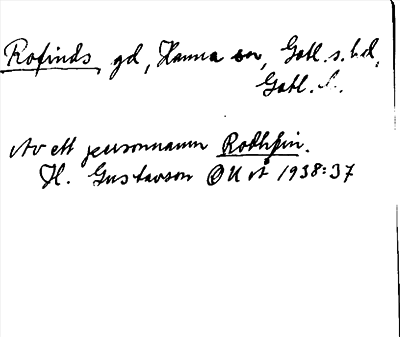 Rofinds, gd, Hamra sn, Gotl. s. hd,
Gotl. l.
Av ett personnamn Rodhfin.
H. Gustavson OUÅ 1938:37